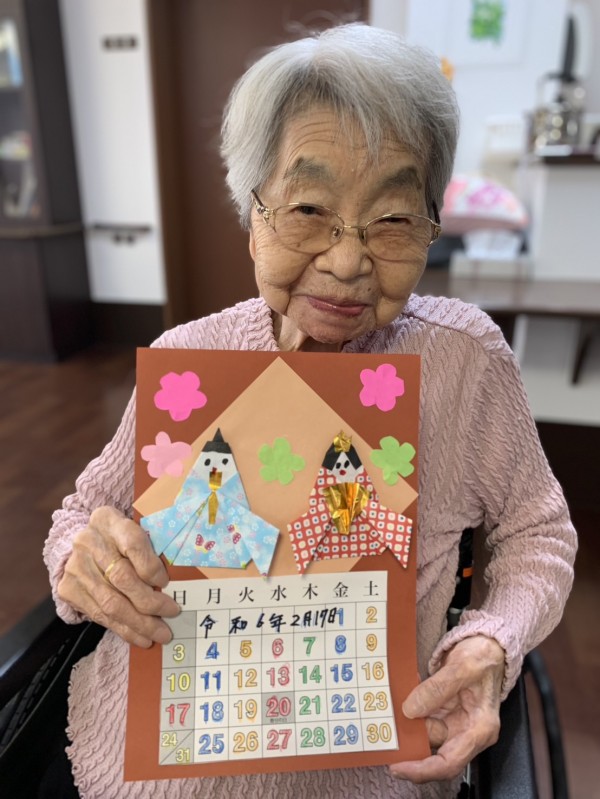 日 月 火 水 木 金 土
令和6年2月17日 1 2
3 4 5 6 7 8 9
10 11 12 13 14 15 16
17 18 19 20 21 22 23
春分の日
24/31 25 26 27 28 29 30